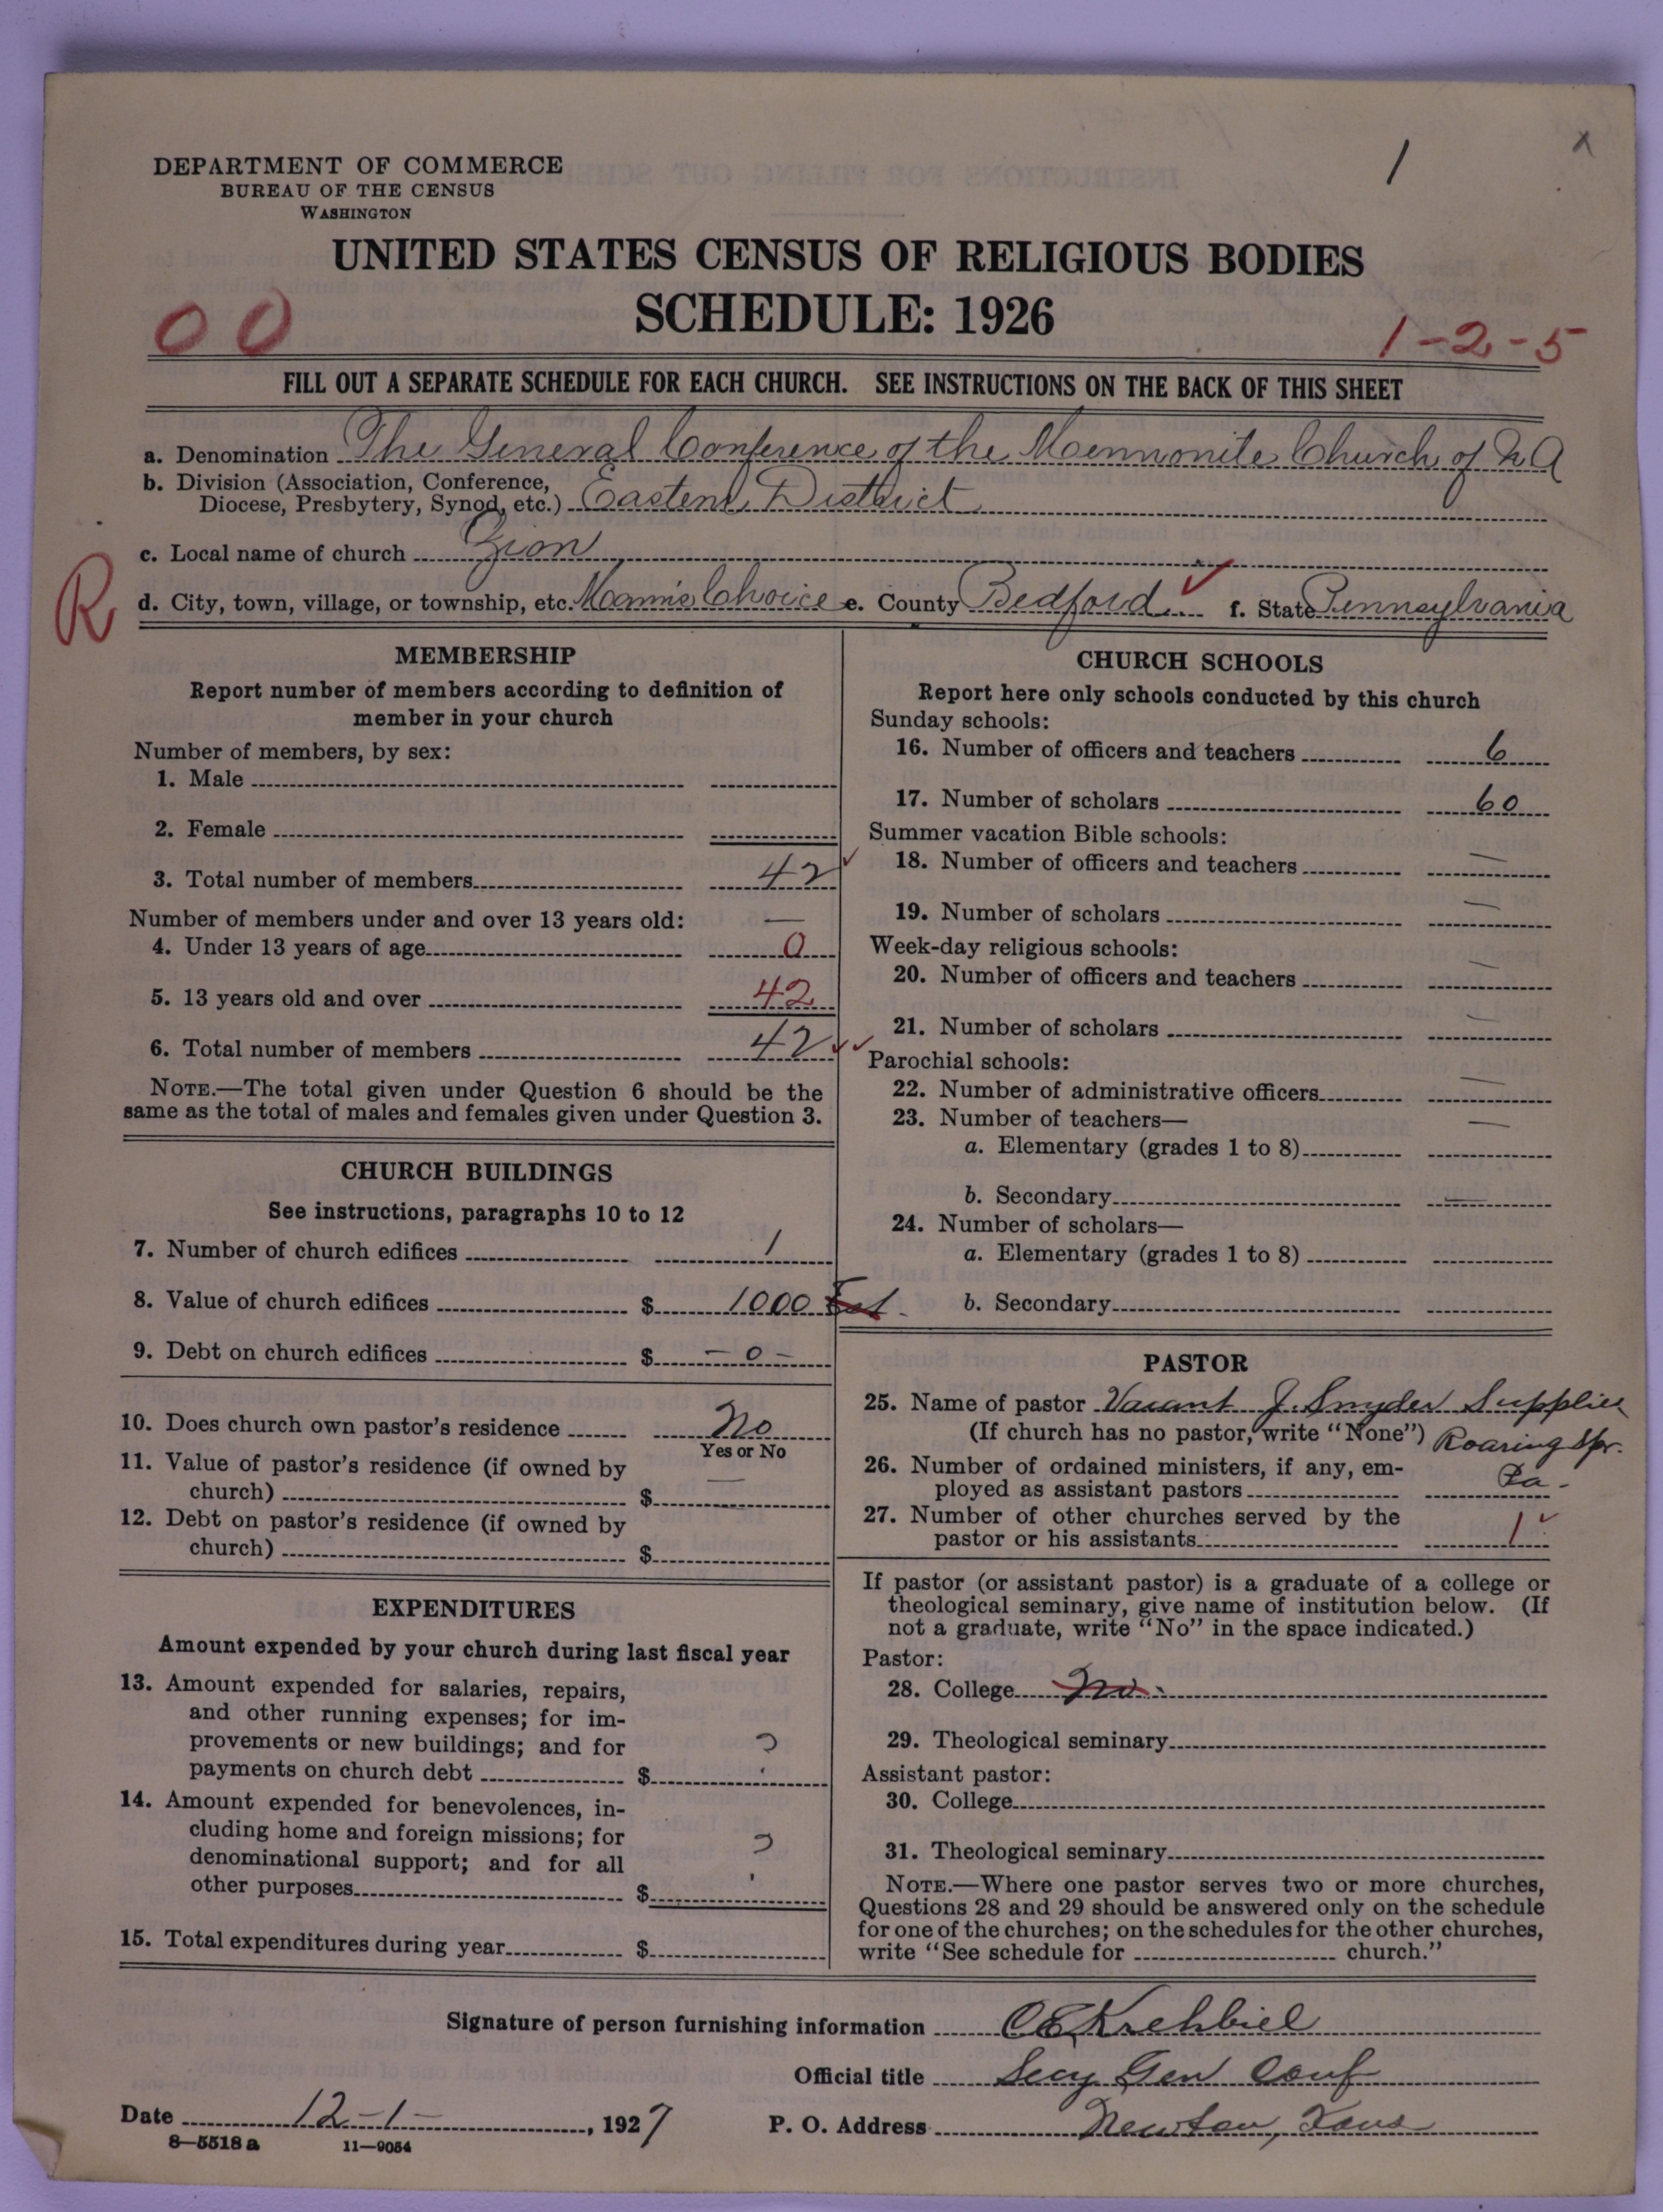 1
x
DEPARTMENT OF COMMERCE
BUREAU OF THE CENSUS
WASHINGTON
UNITED STATES CENSUS OF RELIGIOUS BODIES
SCHEDULE: 1926
00
1-2-5
FILL OUT A SEPARATE SCHEDULE FOR EACH CHURCH. SEE INSTRUCTIONS ON THE BACK OF THIS SHEET
a. Denomination The General Conference of the Mennonite Church of N A
b. Division (Association, Conference,
Diocese, Presbytery, Synod, etc.) Eastern District
c. Local name of church Zion
R
d. City, town, village, or township, etc. Manns Choice e. County Bedford ✓ f. State Pennsylvania
MEMBERSHIP
Report number of members according to definition of
member in your church
Number of members, by sex:
1. Male
2. Female
3. Total number of members 42 ✓
Number of members under and over 13 years old: —
4. Under 13 years of age 0
5. 13 years old and over 42
6. Total number of members 42 ✓✓
NOTE.—The total given under Question 6 should be the
same as the total of males and females given under Question 3.
CHURCH BUILDINGS
See instructions, paragraphs 10 to 12
7. Number of church edifices 1
8. Value of church edifices $ 1000 Est.
9. Debt on church edifices $ — 0 —
10. Does church own pastor's residence No
Yes or No
11. Value of pastor's residence (if owned by
church) $ —
12. Debt on pastor's residence (if owned by
church) $
EXPENDITURES
Amount expended by your church during last fiscal year
13. Amount expended for salaries, repairs,
and other running expenses; for im-
provements or new buildings; and for
payments on church debt $ ?
14. Amount expended for benevolences, in-
cluding home and foreign missions; for
denominational support; and for all
other purposes $ ?
15. Total expenditures during year $
CHURCH SCHOOLS
Report here only schools conducted by this church
Sunday schools:
16. Number of officers and teachers 6
17. Number of scholars 60
Summer vacation Bible schools:
18. Number of officers and teachers —
19. Number of scholars —
Week-day religious schools:
20. Number of officers and teachers —
21. Number of scholars —
Parochial schools:
22. Number of administrative officers —
23. Number of teachers— —
a. Elementary (grades 1 to 8)
b. Secondary —
24. Number of scholars—
a. Elementary (grades 1 to 8)
b. Secondary
PASTOR
25. Name of pastor Vacant J. Snyder Supplies
(If church has no pastor, write "None") Roaring Spr.
26. Number of ordained ministers, if any, em- Pa-
ployed as assistant pastors
27. Number of other churches served by the
pastor or his assistants 1 ✓
If pastor (or assistant pastor) is a graduate of a college or
theological seminary, give name of institution below. (If
not a graduate, write "No" in the space indicated.)
Pastor:
28. College No
29. Theological seminary
Assistant pastor:
30. College
31. Theological seminary
NOTE.—Where one pastor serves two or more churches,
Questions 28 and 29 should be answered only on the schedule
for one of the churches; on the schedules for the other churches,
write "See schedule for church."
Signature of person furnishing information C E Krehbiel
Official title Secy Gen Conf
Date 12-1-, 1927 P. O. Address Newton, Kans
8—5518 a 11—9054